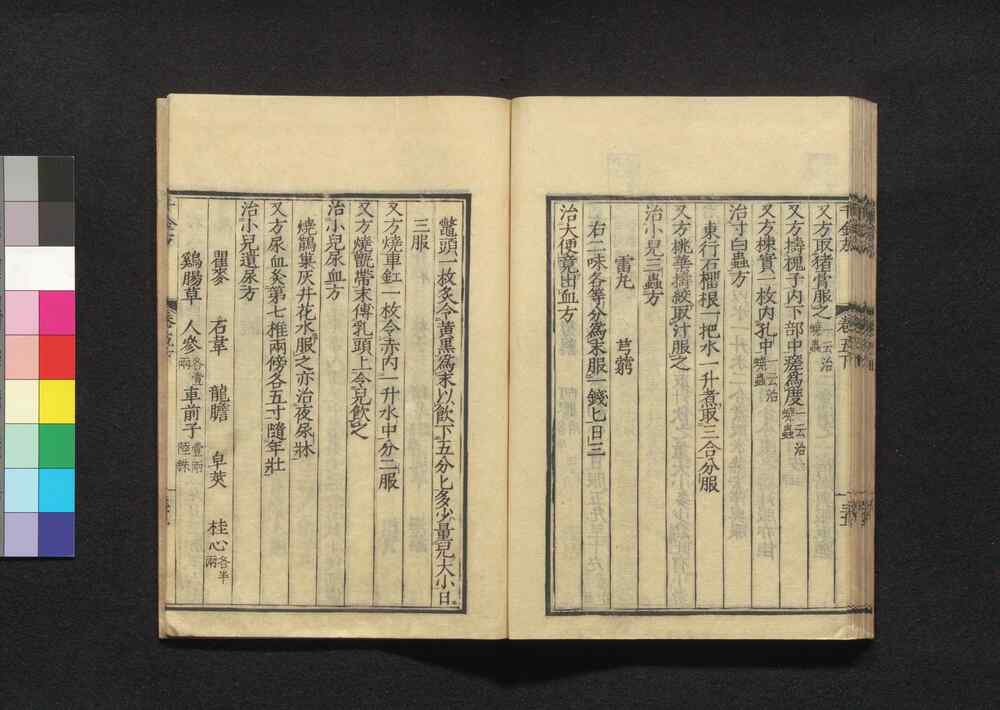 又方取猪膏服之一云治蟯蟲
又方擣槐子内下部中瘥爲度一云治蟯蟲
又方楝實一枚内孔中一云治蟯蟲
治寸白蟲方
東行石榴根一把水一升煮取三合分服
又方桃葉擣絞取汁服之
治小兒三蟲方
雷丸　芎藭
右二味各等分爲末服一錢匕日三
治大便竟出血方
鼈頭一枚炙令黃黑爲末以飲下五分匕多少量兒大小日
三服
又方燒車釭一枚令赤内一升水中分二服
又方燒甑帶末傅乳頭上令兒飲之
治小兒尿血方
燒鵲巢灰井花水服之亦治夜尿牀
又方尿血灸第七椎兩傍各五寸隨年壯
治小兒遺尿方
瞿麥　石韋　龍膽　皁莢　桂心各半兩
鷄腸草　人參各壹兩　車前子壹兩陸銖